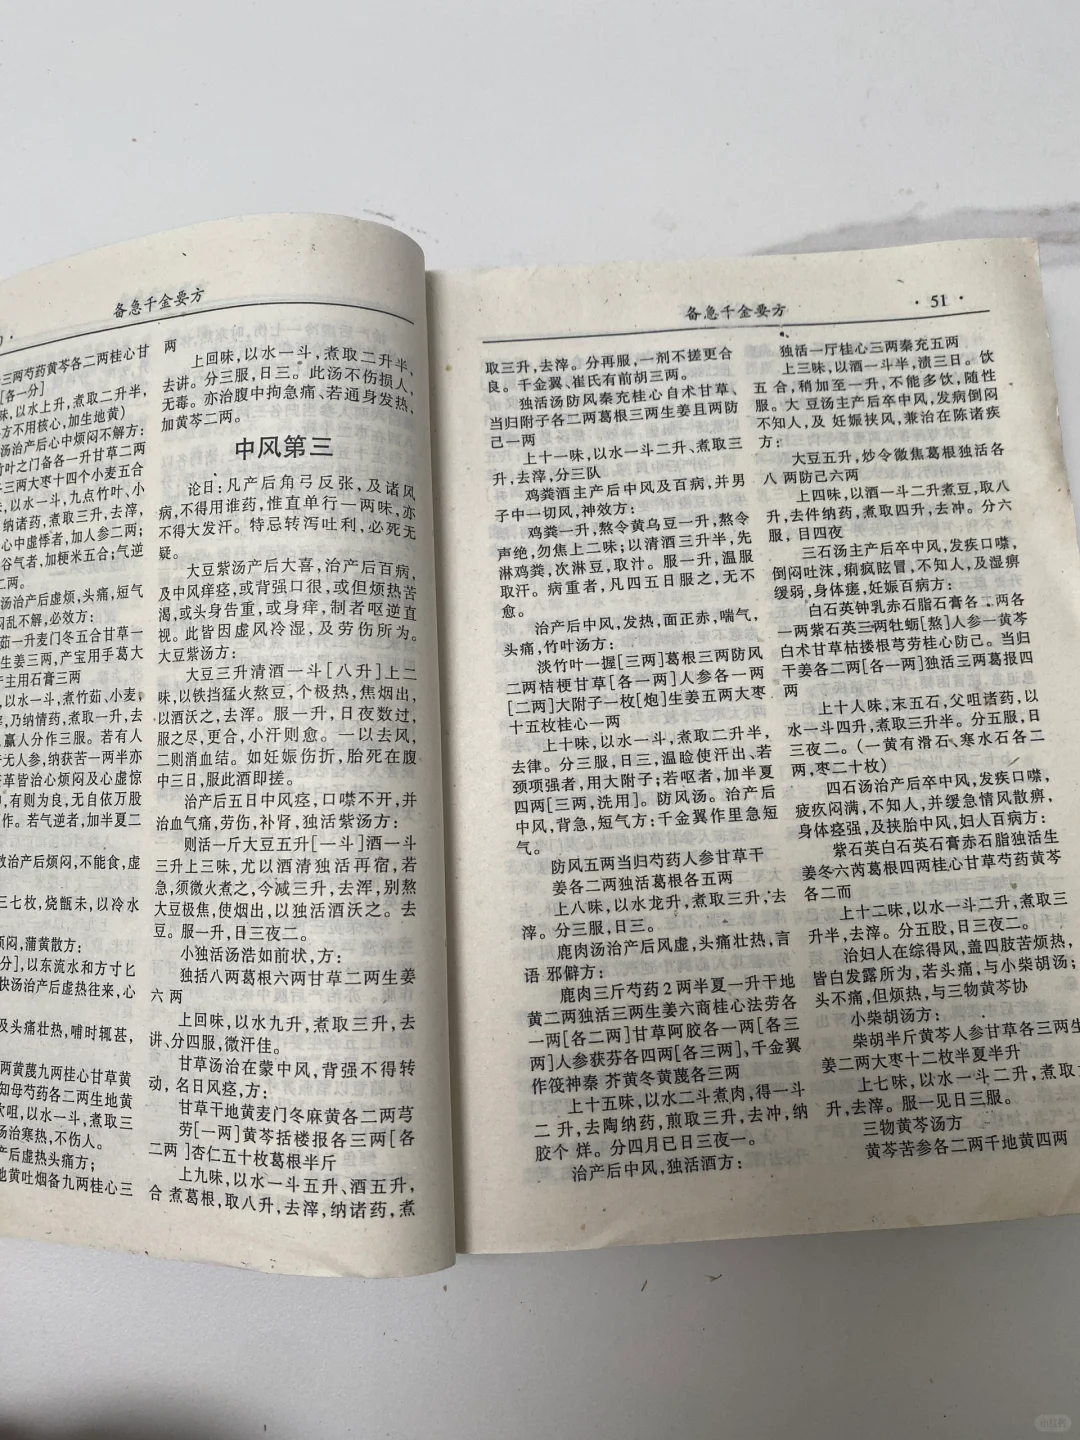 备急千金要方
三两芍药黄芩各二两桂心甘
[各一分]
味,以水上升,煮取二升半,
方不用核心,加生地黄)
汤治产后心中烦闷不解方:
竹叶之门备各一升甘草二两
三两大枣十四个小麦五合
以水一斗,九点竹叶、小
纳诸药,煮取三升,去滓,
心中虚悸者,加人参二两;
谷气者,加粳米五合;气逆
二两。
汤治产后虚烦,头痛,短气
闷乱不解,必效方:
茹一升麦门冬五合甘草一
生姜三两,产宝用手葛大
产主用石膏三两
,以水一斗,煮竹茹、小麦,
,乃纳情药,煮取一升,去
,赢人分作三服。若有人
无人参,纳获苦一两半亦
革皆治心烦闷及心虚惊
,有则为良,无自依万股
作。若气逆者,加半夏二
散治产后烦闷,不能食,虚
三七枚,烧甑未,以冷水
烦闷,蒲黄散方:
分],以东流水和方寸匕
快汤治产后虚热往来,心
及头痛壮热,晡时辄甚,
两黄蔑九两桂心甘草黄
知母芍药各二两生地黄
㕮咀,以水一斗,煮取三
汤治寒热,不伤人。
产后虚热头痛方;
地黄吐烟备九两桂心三
两
上回味,以水一斗,煮取二升半,
去讲。分三服,日三。此汤不伤损人,
无毒。亦治腹中拘急痛、若通身发热,
加黄芩二两。
中风第三
论日:凡产后角弓反张,及诸风
病,不得用谁药,惟直单行一两味,亦
不得大发汗。特忌转泻吐利,必死无
疑。
大豆紫汤产后大喜,治产后百病,
及中风痒痉,或背强口很,或但烦热苦
渴,或头身告重,或身痒,制者呕逆直
视。此皆因虚风冷湿,及劳伤所为。
大豆紫汤方:
大豆三升清酒一斗[八升]上二
味,以铁挡猛火熬豆,个极热,焦烟出,
以酒沃之,去浑。服一升,日夜数过,
服之尽,更合,小汗则愈。一以去风,
二则消血结。如妊娠伤折,胎死在腹
中三日,服此酒即搓。
治产后五日中风痉,口噤不开,并
治血气痛,劳伤,补肾,独活紫汤方:
则活一斤大豆五升[一斗]酒一斗
三升上三味,尤以酒清独活再宿,若
急,须微火煮之,令减三升,去浑,别熬
大豆极焦,使烟出,以独活酒沃之。去
豆。服一升,日三夜二。
小独活汤浩如前状,方:
独括八两葛根六两甘草二两生姜
六两
上回味,以水九升,煮取三升,去
讲、分四服,微汗佳。
甘草汤治在蒙中风,背强不得转
动,名日风痉,方:
甘草干地黄麦门冬麻黄各二两芎
劳[一两]黄芩括楼报各三两[各
二两]杏仁五十枚葛根半斤
上九味,以水一斗五升、酒五升,
合煮葛根,取八升,去滓,纳诸药,煮
备急千金要方 · 51 ·
取三升,去滓。分再服,一剂不搓更合
良。千金翼、崔氏有前胡三两。
独活汤防风秦充桂心自术甘草、
当归附子各二两葛根三两生姜且两防
己一两
上十一味,以水一斗二升、煮取三
升,去滓,分三队
鸡粪酒主产后中风及百病,并男
子中一切风,神效方:
鸡粪一升,熬令黄乌豆一升,熬令
声绝,勿焦上二味;以清酒三升半,先
淋鸡粪,次淋豆,取汁。服一升,温服
取汗。病重者,凡四五日服之,无不
愈。
治产后中风,发热,面正赤,喘气,
头痛,竹叶汤方:
淡竹叶一握[三两]葛根三两防风
二两桔梗甘草[各一两]人参各一两
[二两]大附子一枚[炮]生姜五两大枣
十五枚桂心一两
上十味,以水一斗,煮取二升半,
去律。分三服,日三,温睑使汗出、若
颈项强者,用大附子;若呕者,加半夏
四两[三两,洗用]。防风汤。治产后
中风,背急,短气方:千金翼作里急短
气。
防风五两当归芍药人参甘草干
姜各二两独活葛根各五两
上八味,以水龙升,煮取三升,去
滓。分三服,日三。
鹿肉汤治产后风虚,头痛壮热,言
语邪僻方:
鹿肉三斤芍药2两半夏一升干地
黄二两独活三两生姜六商桂心法劳各
一两[各二两]甘草阿胶各一两[各三
两]人参获芬各四两[各三两]、千金翼
作筏神秦芥黄冬黄蔑各三两
上十五味,以水二斗煮肉,得一斗
二升,去陶纳药,煎取三升,去冲,纳
胶个烊。分四月已日三夜一。
治产后中风,独活酒方:
独活一斤桂心三两秦充五两
上三味,以酒一斗半,渍三日。饮
五合,稍加至一升,不能多饮,随性
服。大豆汤主产后卒中风,发病倒闷
不知人,及妊娠挟风,兼治在陈诸疾
方:
大豆五升,炒令微焦葛根独活各
八两防己六两
上四味,以酒一斗二升煮豆,取八
升,去件纳药,煮取四升,去冲。分六
服,目四夜
三石汤主产后卒中风,发疾口噤,
倒闷吐沫,痢疯眩冒,不知人,及湿痹
缓弱,身体瘗,妊娠百病方:
白石英钟乳赤石脂石膏各二两各
一两紫石英三两牡蛎[熬]人参一黄芩
白术甘草枯搂根芎劳桂心防己。当归
干姜各二两[各一两]独活三两葛报四
两
上十人味,末五石,父咀诸药,以
水一斗四升,煮取三升半。分五服,日
三夜二。(一黄有滑石、寒水石各二
两,枣二十枚)
四石汤治产后卒中风,发疾口噤,
疲疚闷满,不知人,并缓急情风散痹,
身体痉强,及挟胎中风,妇人百病方:
紫石英白石英石膏赤石脂独活生
姜冬六芮葛根四两桂心甘草芍药黄芩
各二而
上十二味,以水一斗二升,煮取三
升半,去滓。分五股,日三夜二。
治妇人在综得风,盖四肢苦烦热,
皆白发露所为,若头痛,与小柴胡汤;
头不痛,但烦热,与三物黄芩协
小柴胡汤方:
柴胡半斤黄芩人参甘草各三两生
姜二两大枣十二枚半夏半升
上七味,以水一斗二升,煮取
升,去滓。服一见日三服。
三物黄芩汤方
黄芩苦参各二两千地黄四两